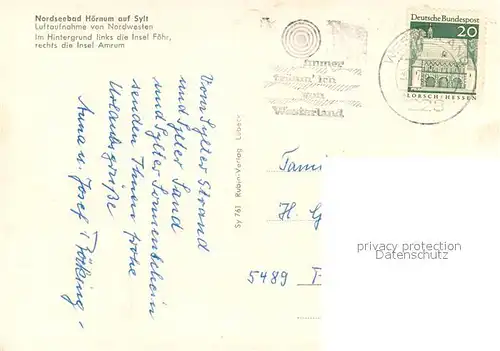 Nordseebad Hörnum auf Sylt
Luftaufnahme von Nordwesten
Im Hintergrund links die Insel Föhr,
rechts die Insel Amrum
Vom Sylter Strand
und Sylter Sand
und Sylter Sonnenschein
senden Ihnen frohe
Urlaubsgrüße
Anna u. Josef
Sy 761 Rubin-Verlag Lübeck
immer
träum' ich
von
Westerland
Deutsche Bundespost
20
LORSCH · HESSEN
Fami
H. G
5489
privacy protection
Datenschutz